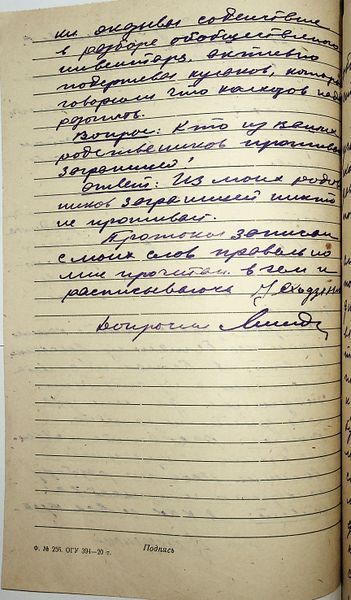 ки оказывал содействие
в разборе обобществленного
инвентаря, активно
поддерживал кулаков, которые
говорили что колхозов не
Вопрос: Кто из Ваших
родственников проживает
заграницей?
Ответ: Из моих родст
ников заграницей никто
не проживает.
Протокол записан
с моих слов правильно
мне прочитан в чем и
расписываюсь
Допросил
Ф. № 256. ОГУ 394—20 г. Подпись